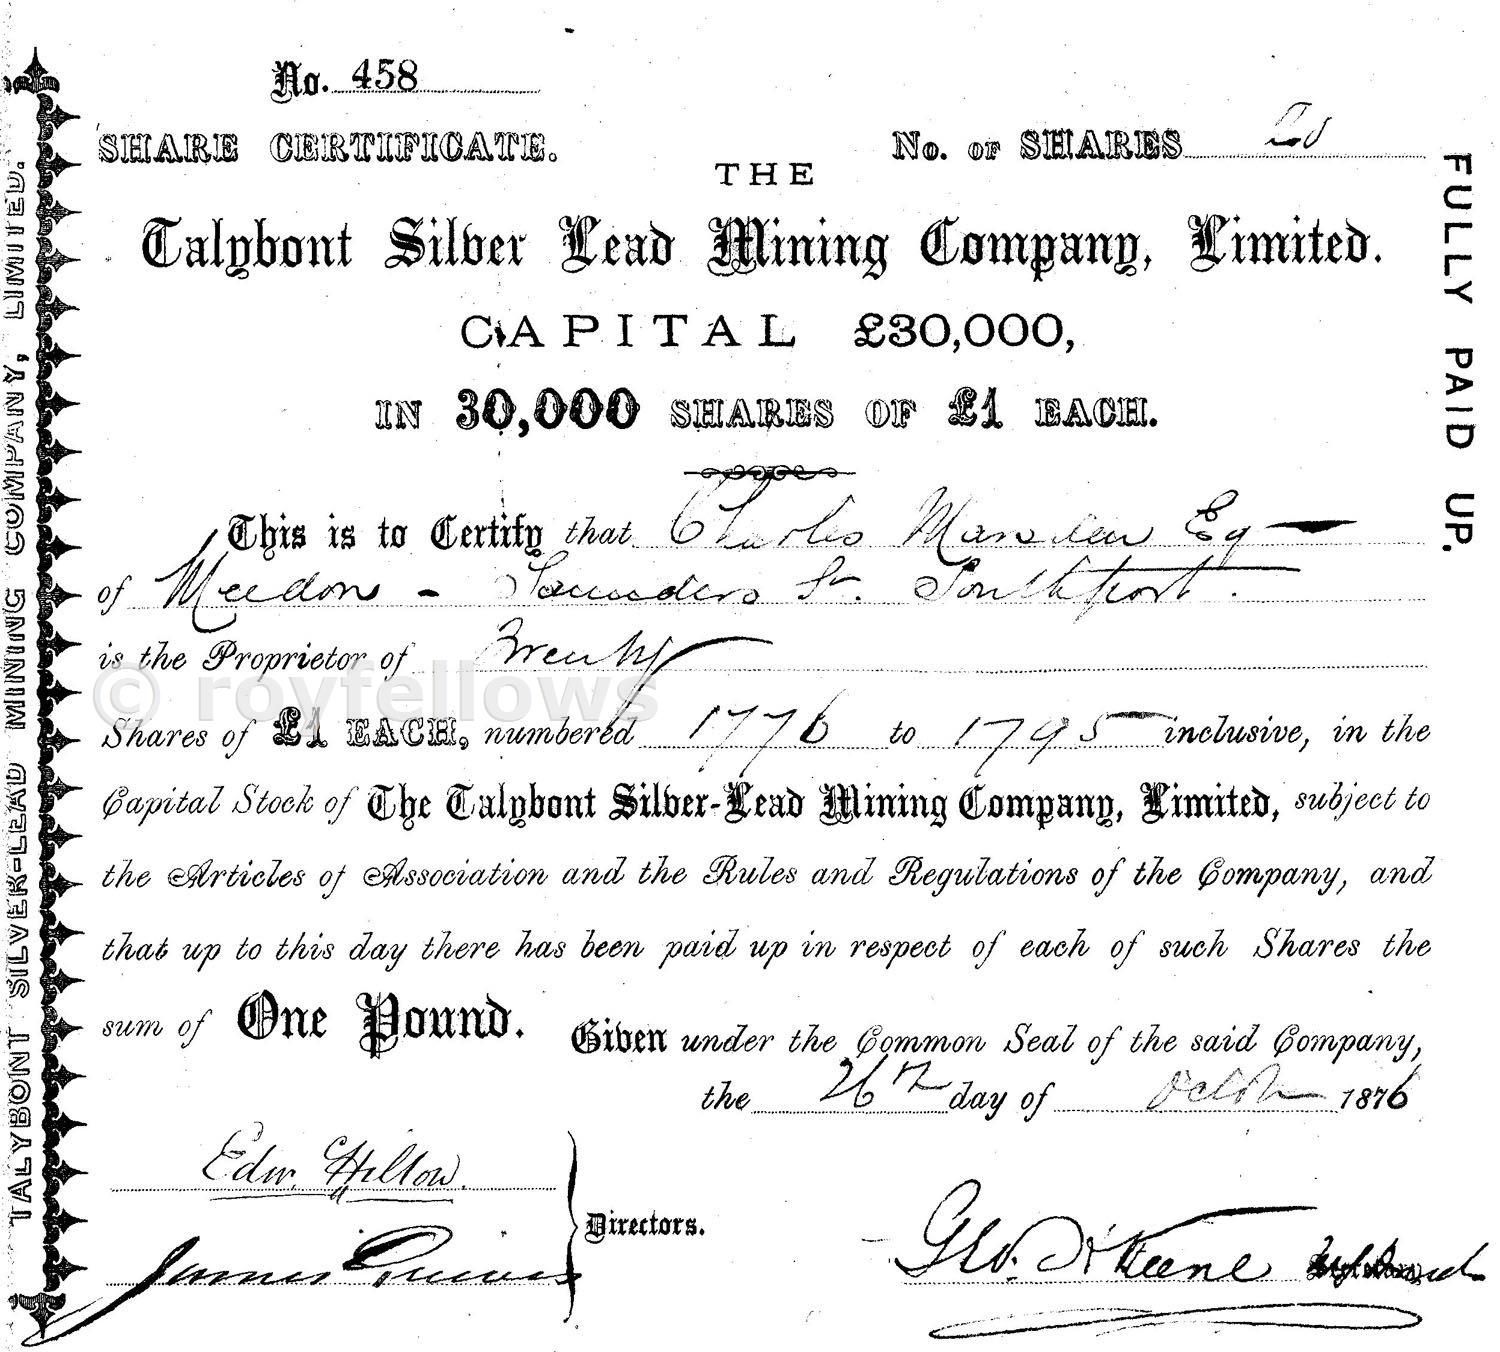 No. 458
SHARE CERTIFICATE.
No. OF SHARES 20
THE
Talybont Silver Lead Mining Company, Limited.
CAPITAL £30,000,
IN 30,000 SHARES OF £1 EACH.
This is to Certify that Charles Marsden Esq
of Meedon - Saunders St. Southport.
is the Proprietor of Twenty
Shares of £1 EACH, numbered 1776 to 1795 inclusive, in the
Capital Stock of The Talybont Silver-Lead Mining Company, Limited, subject to
the Articles of Association and the Rules and Regulations of the Company, and
that up to this day there has been paid up in respect of each of such Shares the
sum of One Pound. Given under the Common Seal of the said Company,
the 26th day of October 1876
Edw. Hilton.
James
Directors.
Geo. H Keene
FULLY PAID UP.
TALYBONT SILVER-LEAD MINING COMPANY, LIMITED.
© royfellows